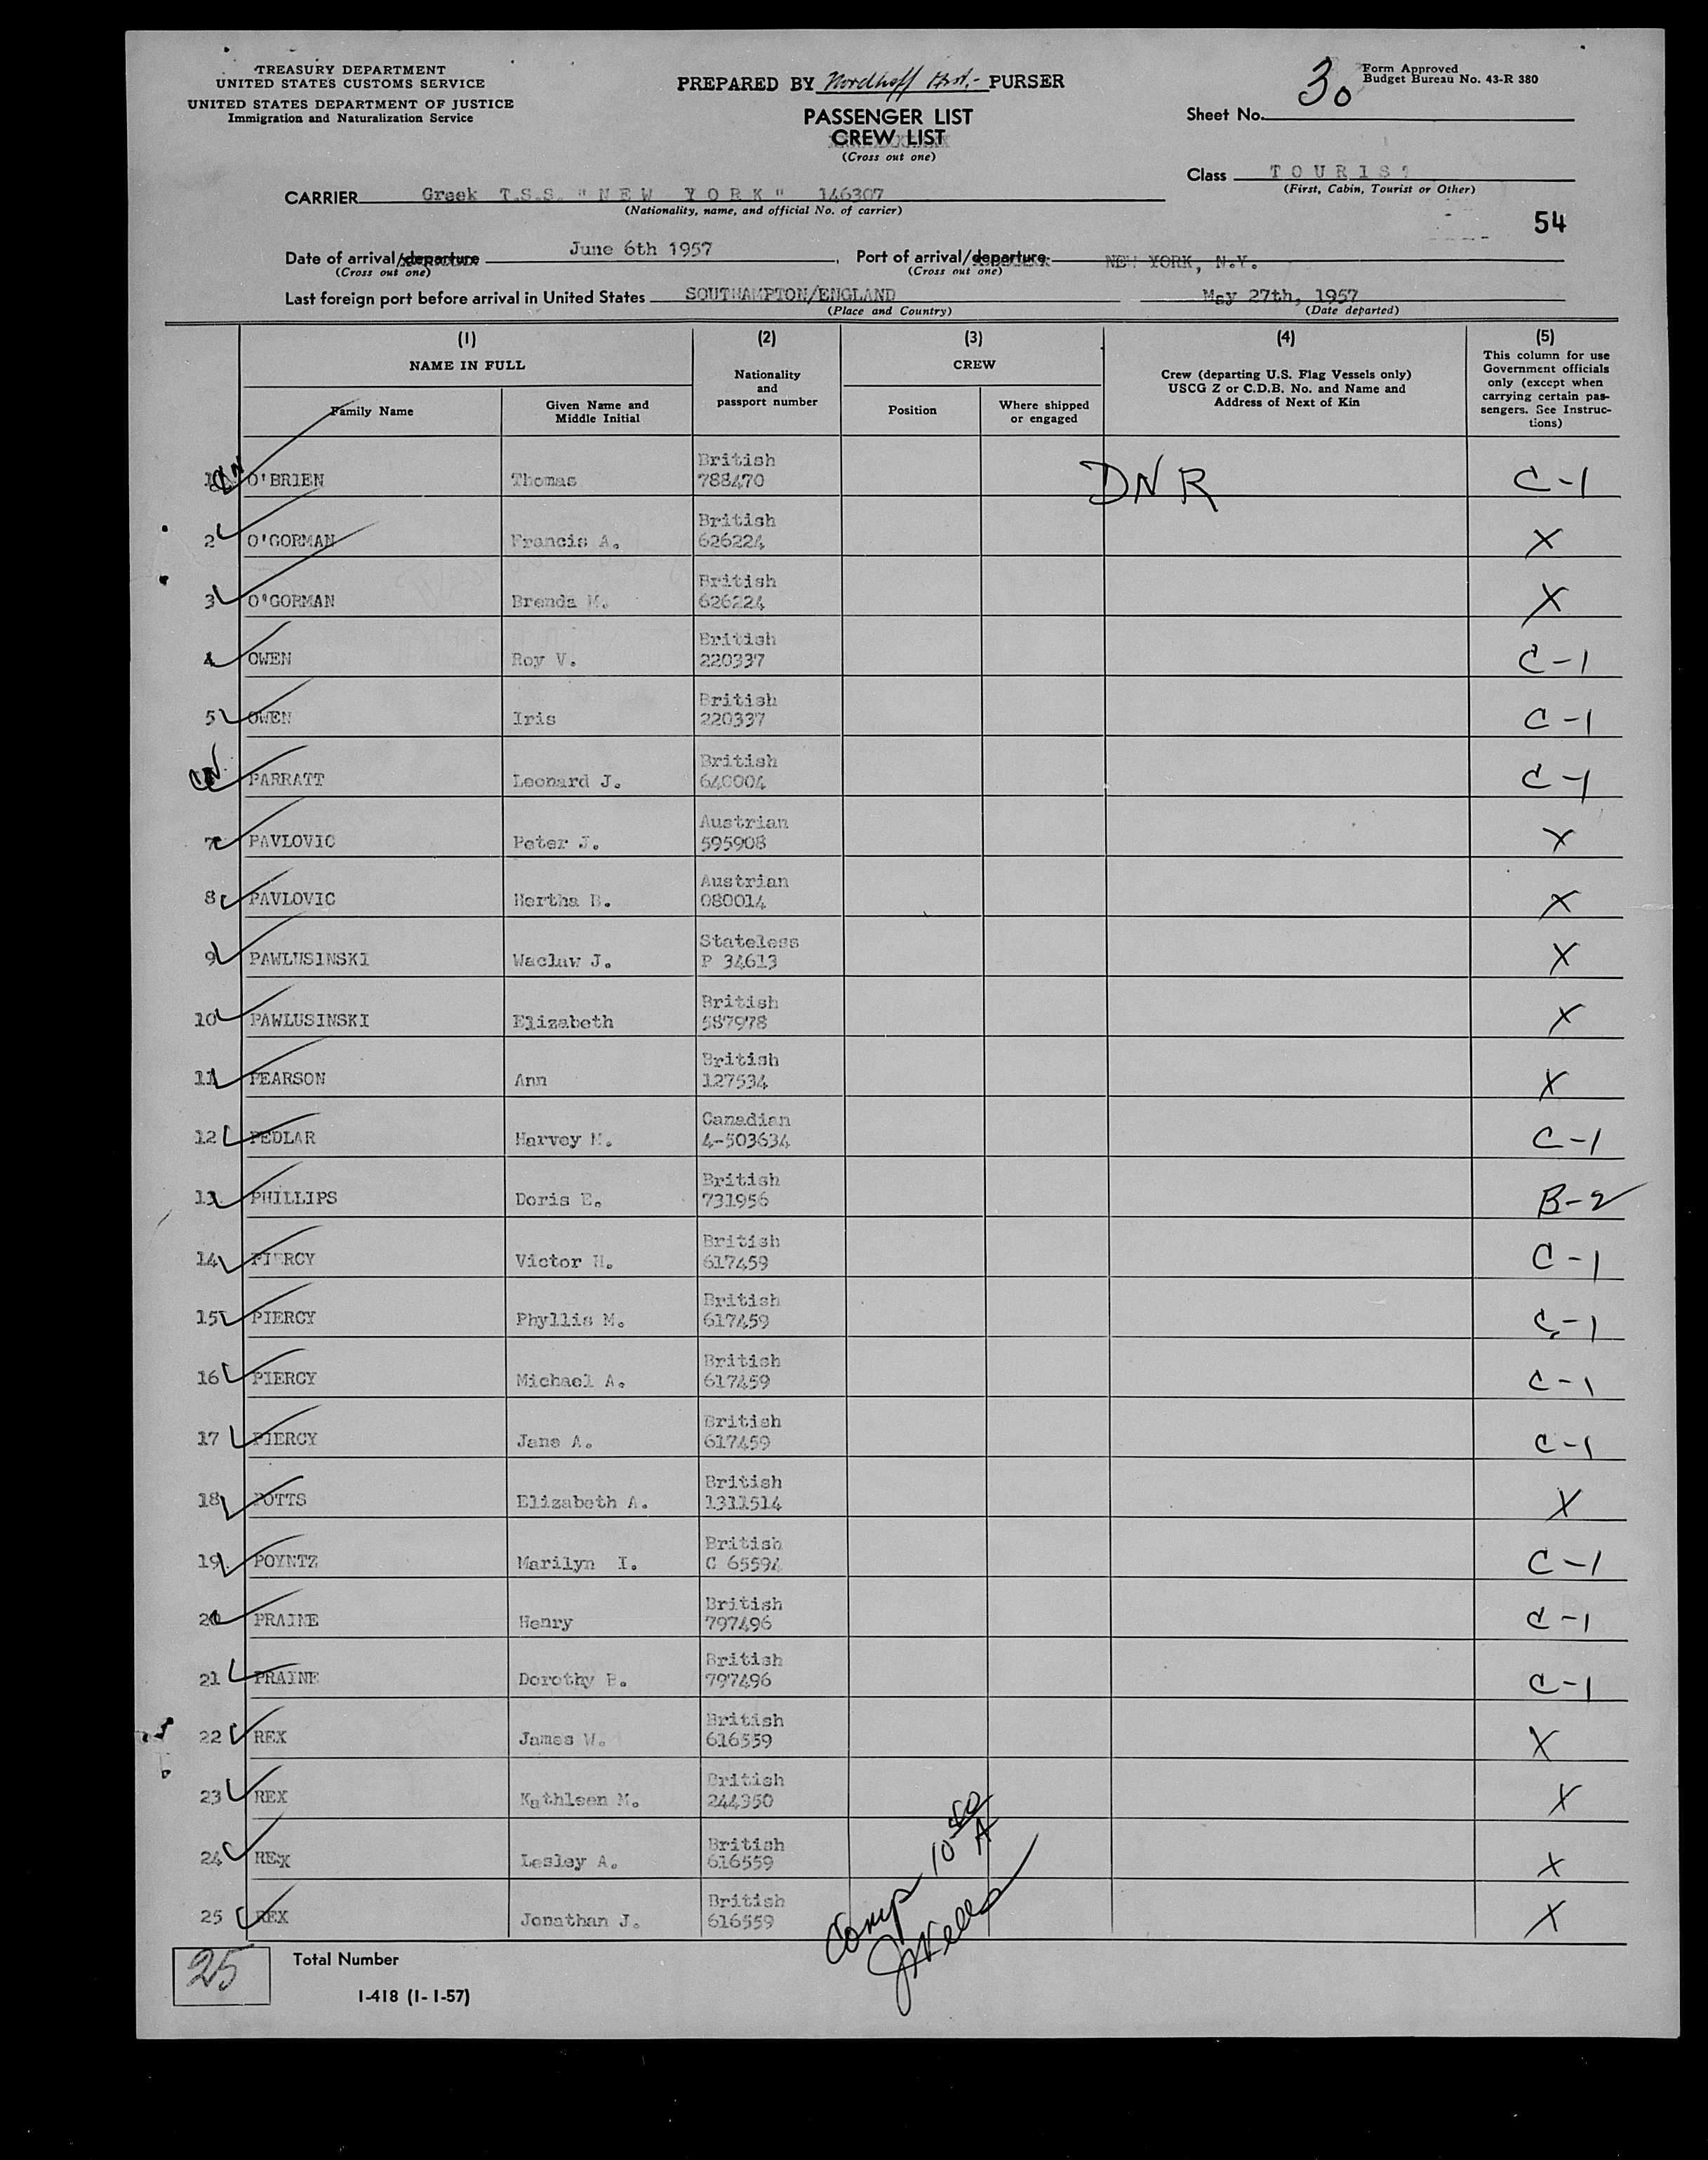 TREASURY DEPARTMENT
UNITED STATES CUSTOMS SERVICE
UNITED STATES DEPARTMENT OF JUSTICE
Immigration and Naturalization Service
PREPARED BY Nordhoff PURSER
PASSENGER LIST
CREW LIST
(Cross out one)
Form Approved
Budget Bureau No. 43-R 380
Sheet No. 30
Class TOURIST
(First, Cabin, Tourist or Other)
CARRIER Greek T.S.S. "NEW YORK" 146307
(Nationality, name, and official No. of carrier)
54
Date of arrival/departure June 6th 1957, Port of arrival/departure NEW YORK, N.Y.
(Cross out one) (Cross out one)
Last foreign port before arrival in United States SOUTHAMPTON/ENGLAND May 27th, 1957
(Place and Country) (Date departed)
(1) NAME IN FULL
Family Name
Given Name and Middle Initial
(2) Nationality and passport number
(3) CREW
Position
Where shipped or engaged
(4) Crew (departing U.S. Flag Vessels only) USCG Z or C.D.B. No. and Name and Address of Next of Kin
(5) This column for use Government officials only (except when carrying certain passengers. See Instructions)
1 O'BRIEN Thomas British 788470 DNR C-1
2 O'GORMAN Francis A. British 626224 X
3 O'GORMAN Brenda M. British 626224 X
4 OWEN Roy V. British 220337 C-1
5 OWEN Iris British 220337 C-1
PARRATT Leonard J. British 640004 C-1
7 PAVLOVIC Peter J. Austrian 595908 X
8 PAVLOVIC Hertha B. Austrian 080014 X
9 PAWLUSINSKI Waclaw J. Stateless P 34613 X
10 PAWLUSINSKI Elizabeth British 587978 X
11 PEARSON Ann British 127534 X
12 PEDLAR Harvey M. Canadian 4-503634 C-1
13 PHILLIPS Doris E. British 731956 B-2
14 PIERCY Victor H. British 617459 C-1
15 PIERCY Phyllis M. British 617459 C-1
16 PIERCY Michael A. British 617459 C-1
17 PIERCY Jane A. British 617459 C-1
18 POTTS Elizabeth A. British 1311514 X
19 POYNTZ Marilyn I. British C 65594 C-1
20 PRAINE Henry British 797496 C-1
21 PRAINE Dorothy B. British 797496 C-1
22 REX James W. British 616559 X
23 REX Kathleen M. British 244350 X
24 REX Lesley A. British 616559 X
25 REX Jonathan J. British 616559 X
Comp 10 40 A
25 Total Number
I-418 (1-1-57)